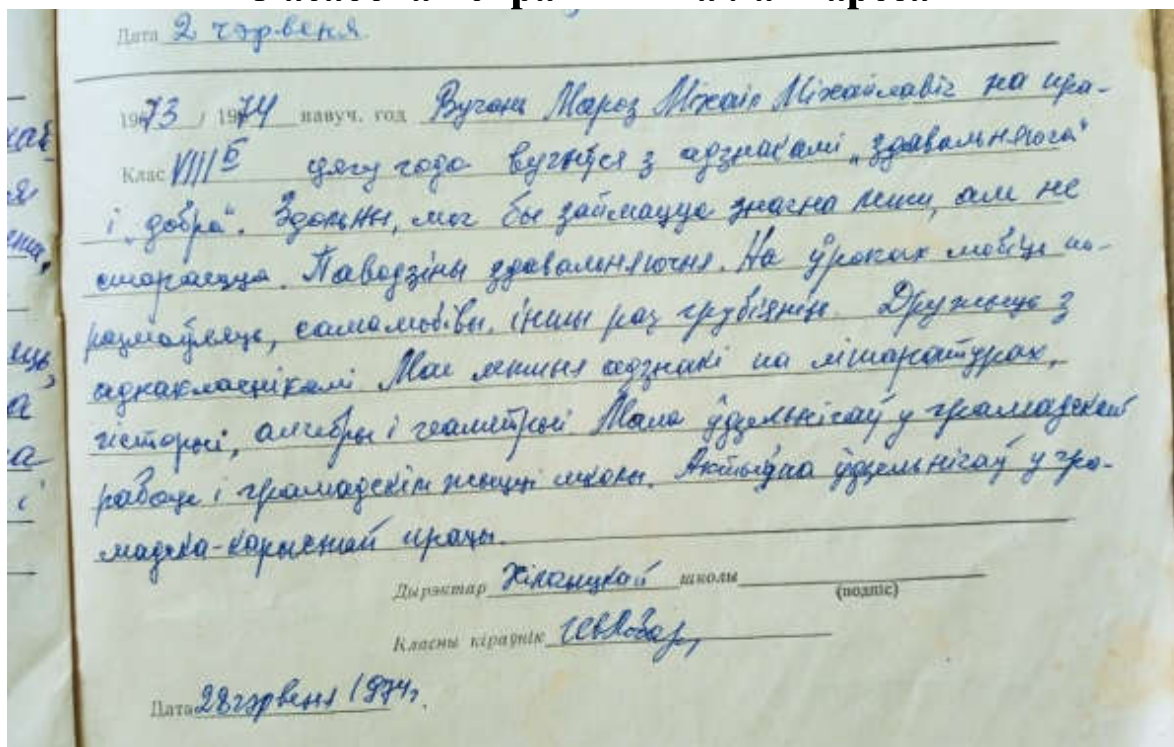 Дата 2 чэрвеня
1973 / 1974 навуч. год Вучань Мароз Міхаіл Міхайлавіч на пра-
Клас VIII Б цягу года вучыўся з адзнакамі „здавальняюча“
і „добра“. Здольны, мог бы займацца значна лепш, але не
стараецца. Паводзіны здавальняючыя. На ўроках любіць па-
размаўляць, самалюбівы, іншы раз грубіяніць. Дружыць з
аднакласнікамі. Мае лепшыя адзнакі па літаратурах,
гісторыі, алгебры і геаметрыі. Мала ўдзельнічаў у грамадскай
рабоце і грамадскім жыцці школы. Актыўна ўдзельнічаў у гра-
мадска-карыснай працы.
Дырэктар школы
(подпіс)
Класны кіраўнік
Дата 28 чэрвеня 1974г.